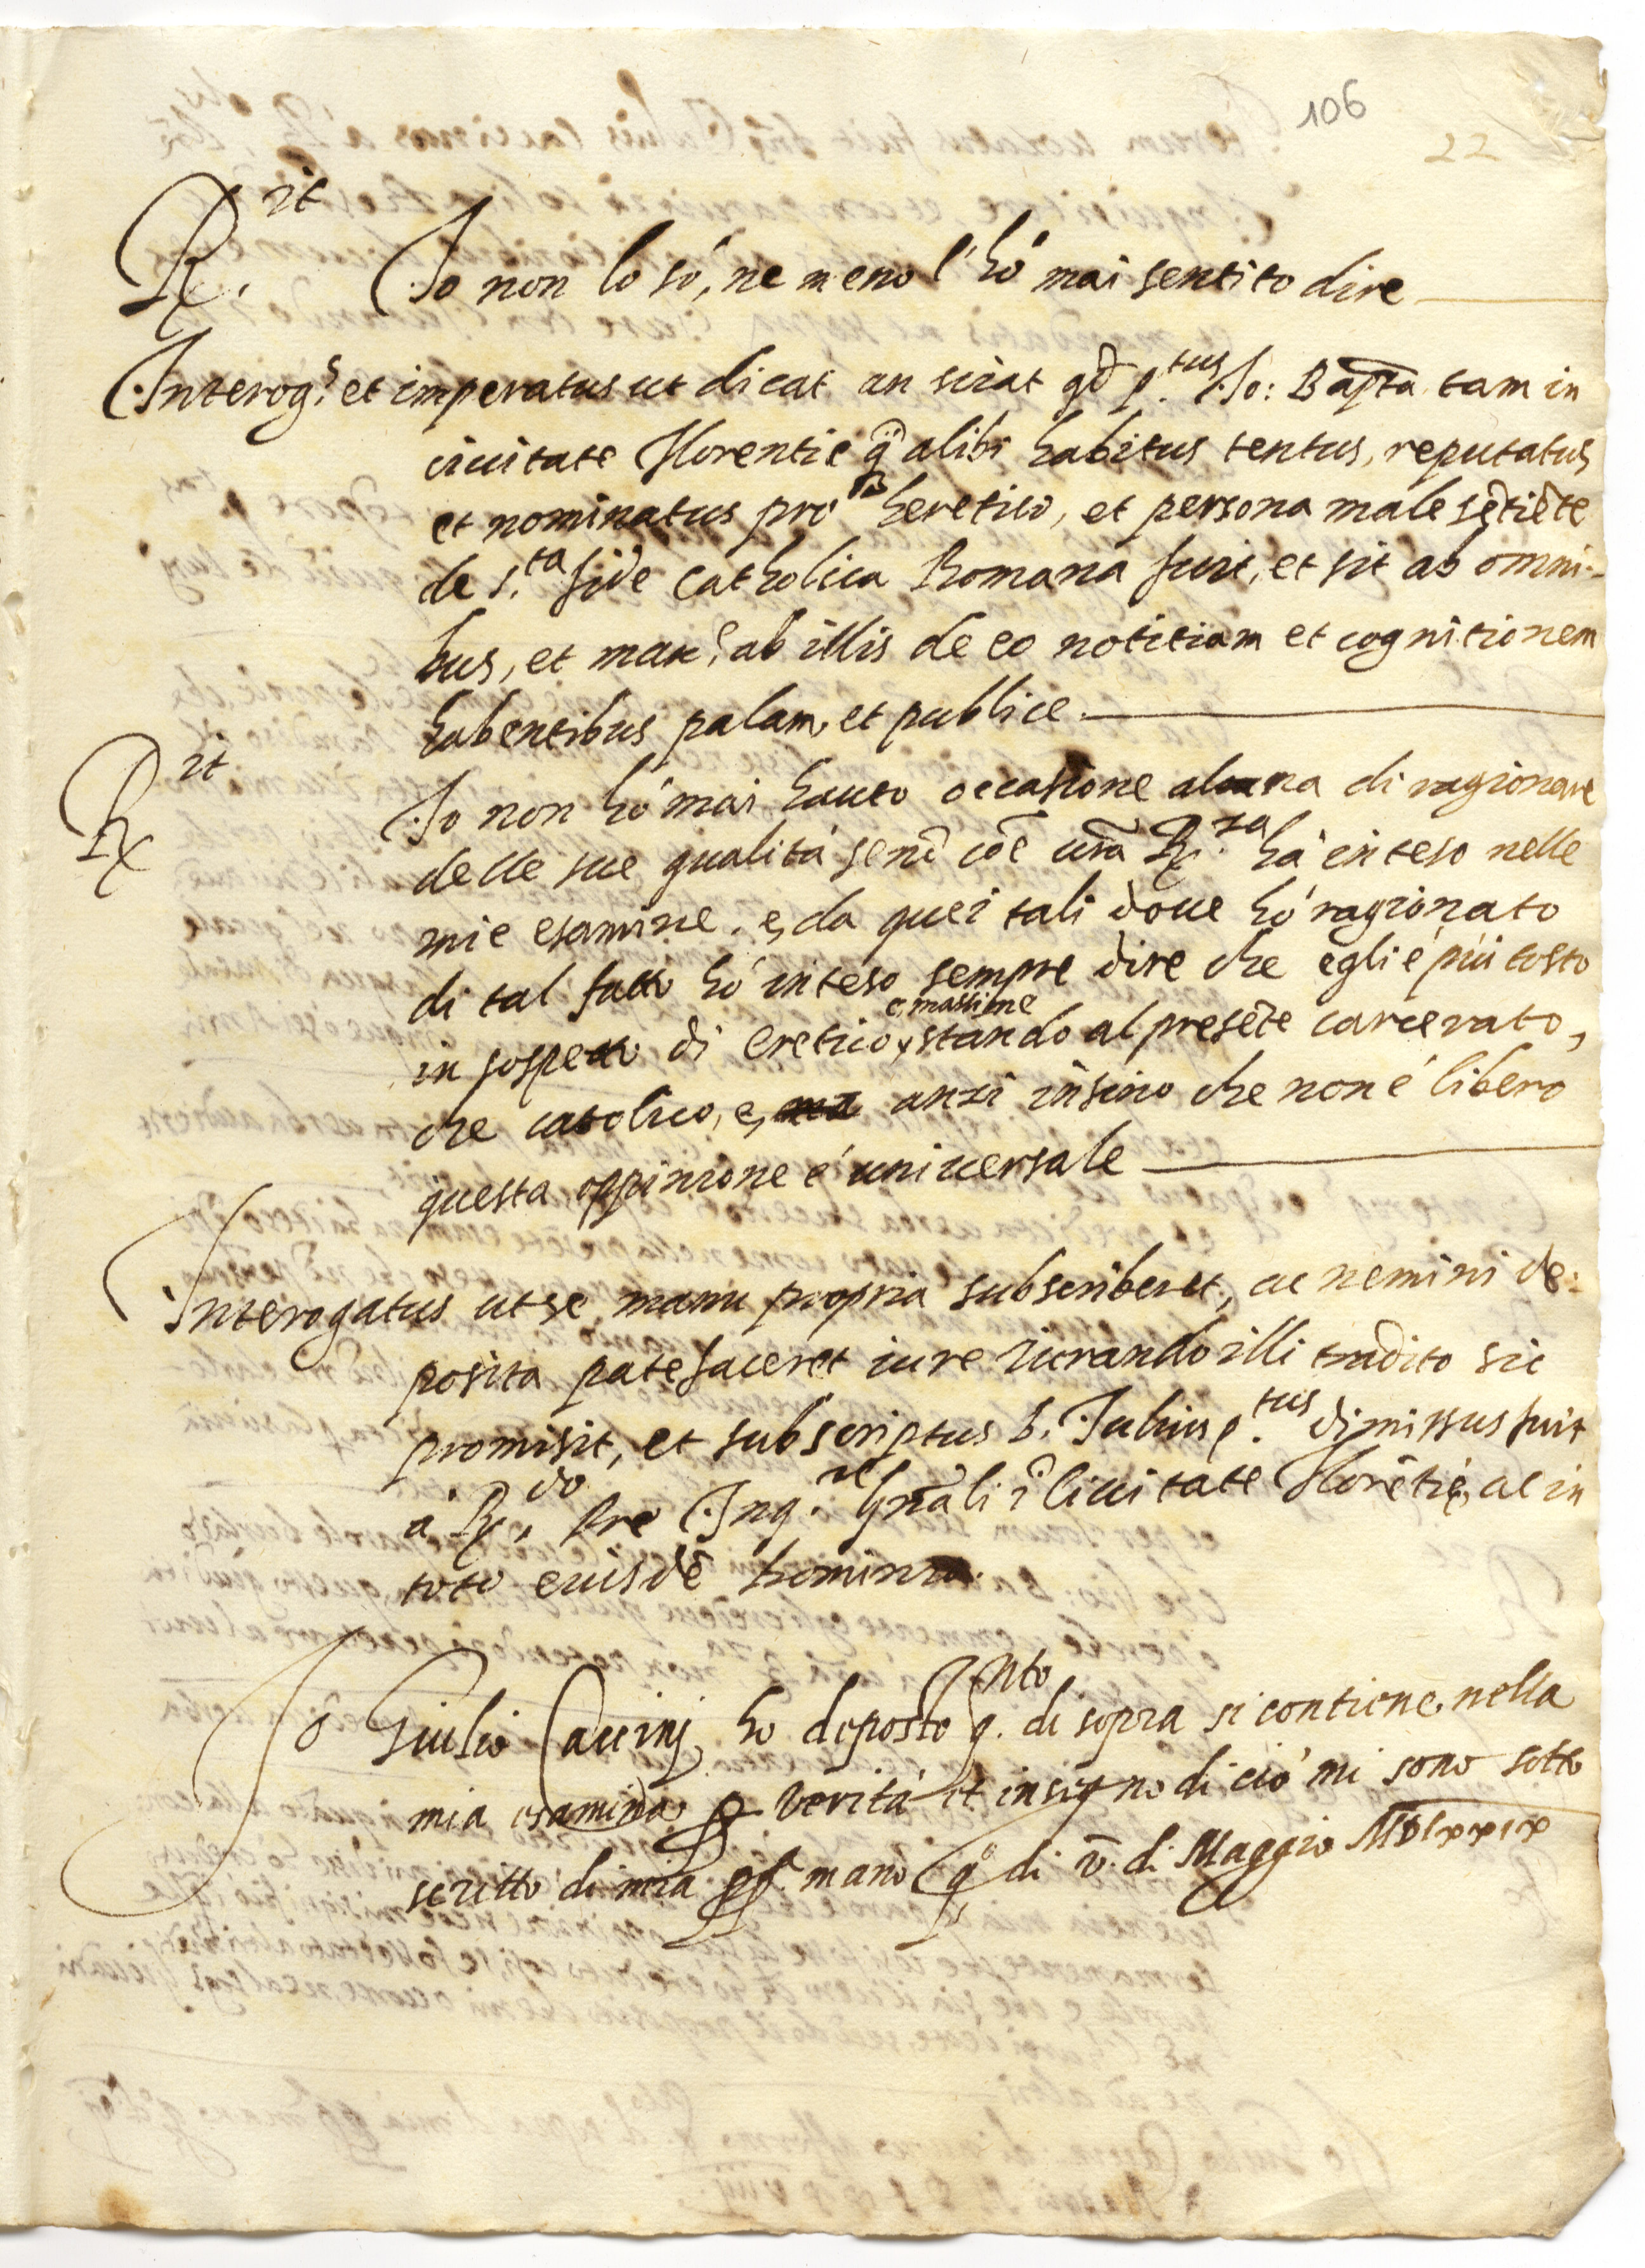 106
22
R.it Io non lo só, ne meno l'hó mai sentito dire
Interog.s et imperatus ut dicat an sciat qd p.tus Jo: Bapta tam in
civitate Florentie q̃ alibi habitus tentus, reputatus
et nominatus pro heretico, et persona male sẽtiẽte
de s.ta fide catholica Romana fuit, et sit ab omni-
bus, et max.e ab illis de eo notitiam et cognitionem
habentibus palam, et publice.
R.it Io non hó mai hauto occasione alcuna di ragionare
delle sue qualitá senõ cõe vr̃a R.za há inteso nelle
mie esamine. e, da quei tali doue hó ragionato
di tal fatto hó inteso sempre dire che egli é piú tosto
e, massime
in sospetto di eretico, stando al presẽte carcerato,
che catolico, e, anzi insino che non é libero
questa oppinione é uniuersale
Interogatus ut se manu propria subscriberet, ac nemini de:
posita patefaceret iure iurando illi tradito sic
promisit, et subscriptus D. Julius p.tus dimissus fuit
á R.do Pre Inq.re Gñali ĩ Ciuitate Florẽtie, ac in
toto eiusdẽ Dominio.
Io Giulio Caccinj ho deposto q.nto di sopra si contiene nella
mia esamina p veritá et in segno di ció mi sono sotto
scritto di mia pp.a mano q.o di v. di Maggio MDLxxix